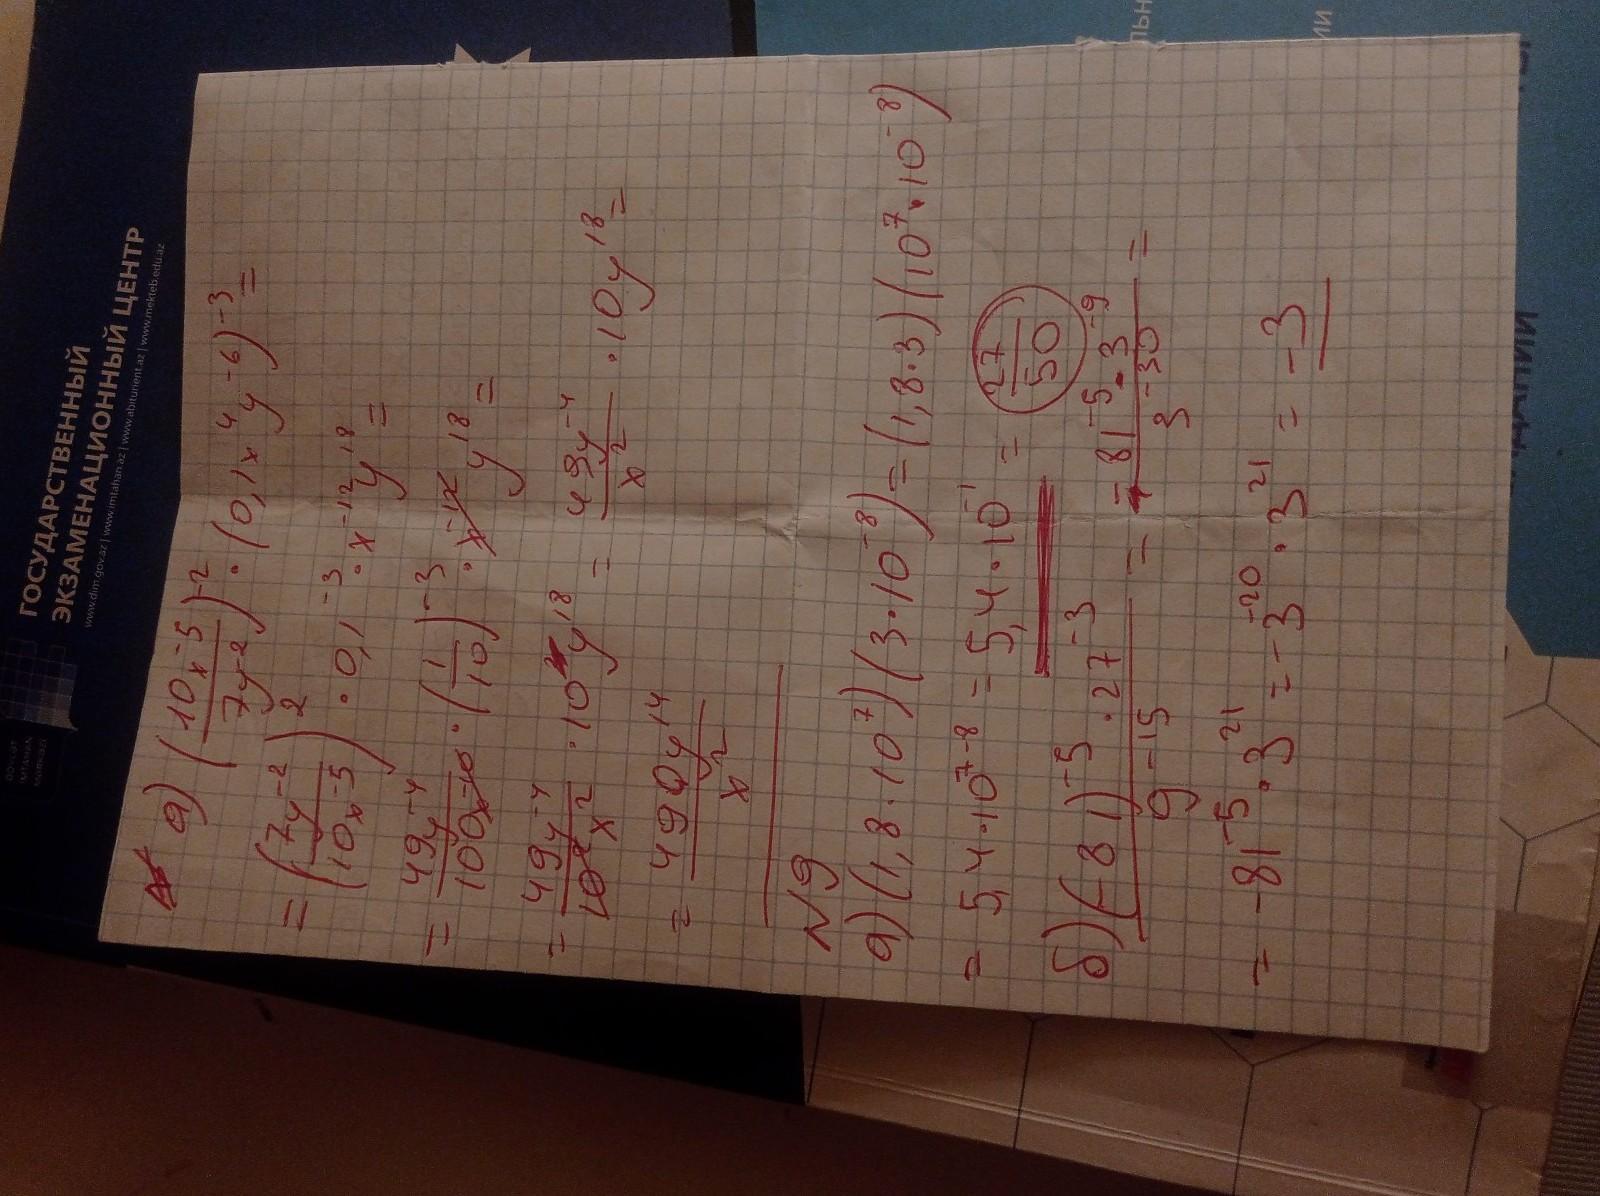 ГОСУДАРСТВЕННЫЙ
ЭКЗАМЕНАЦИОННЫЙ ЦЕНТР
www.dim.gov.az | www.imtahan.az | www.abituriyent.az | www.mekteb.edu.az
а) (10x⁻⁵/7y⁻²)⁻² · (0,1x⁴y⁻⁶)⁻³ =
= (7y⁻²/10x⁻⁵)² · 0,1⁻³ · x⁻¹²y¹⁸ =
= 49y⁻⁴/100x⁻¹⁰ · (1/10)⁻³ · x⁻¹²y¹⁸ =
= 49y⁻⁴/10²x² · 10y¹⁸ = 49y⁻⁴/x² · 10y¹⁸ =
= 490y¹⁴/x²
N9
а) (1,8·10⁷)(3·10⁻⁸) = (1,8·3)(10⁷·10⁻⁸)
= 5,4·10⁷⁻⁸ = 5,4·10⁻¹ = 27/50
б) (-81)⁻⁵·27⁻³/9⁻¹⁵ = -81⁻⁵·3⁻⁹/3⁻³⁰ =
= -81⁻⁵·3²¹ = -3⁻²⁰·3²¹ = -3